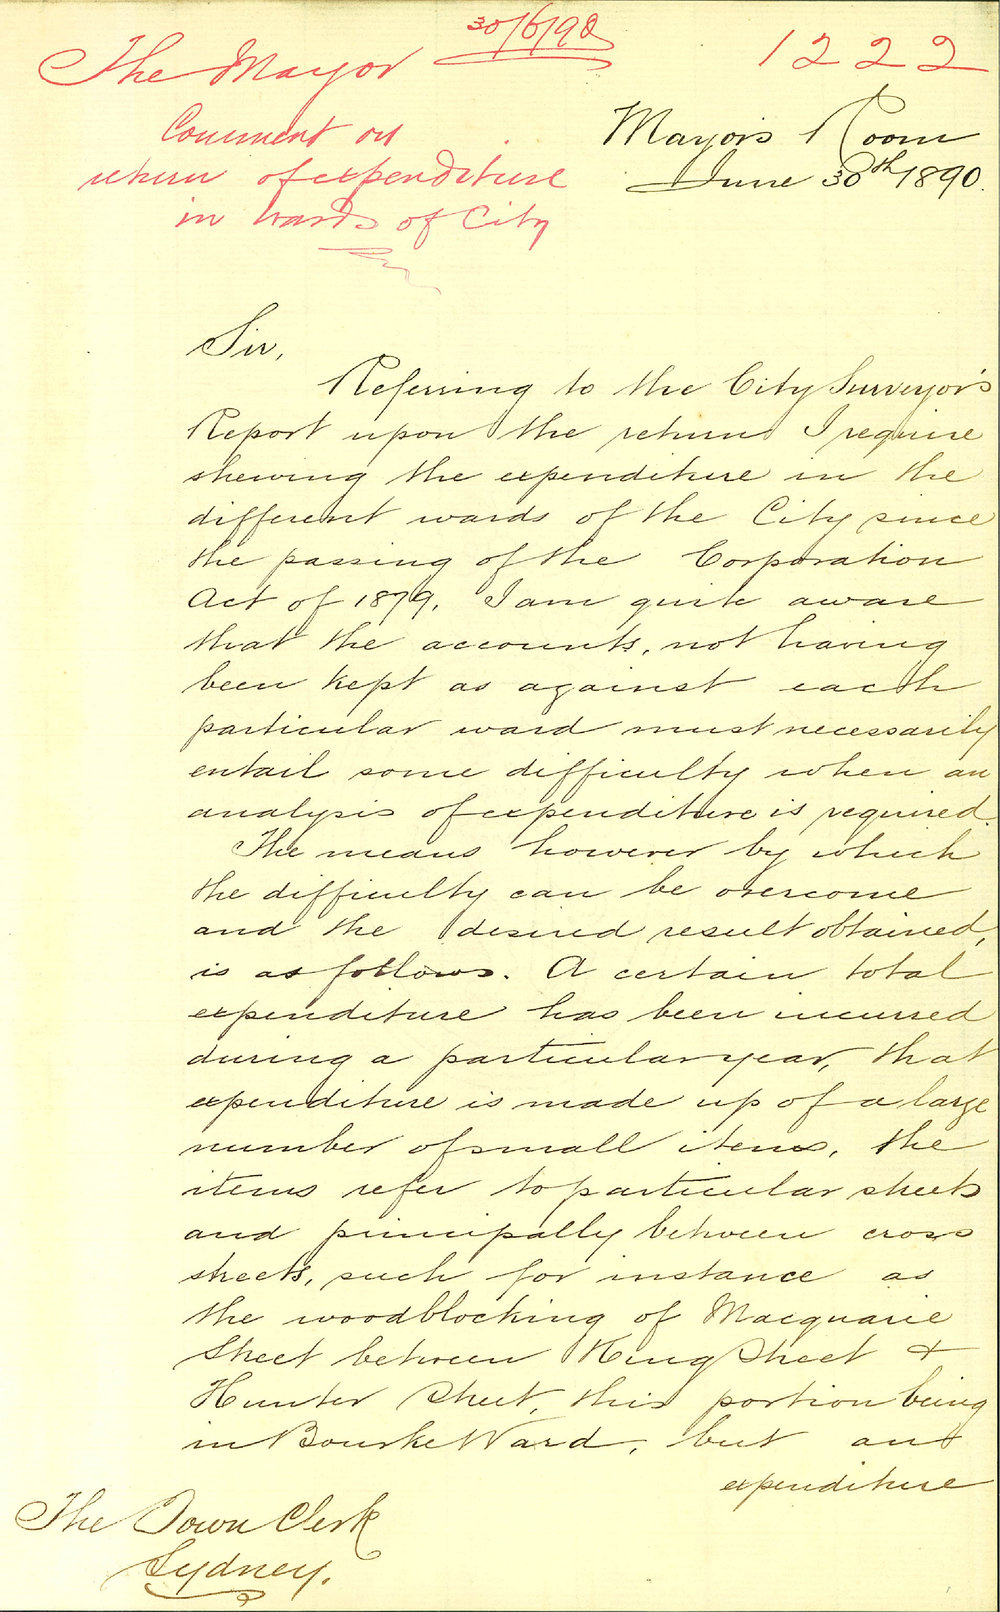 30/6/90
1222
The Mayor
Comment on
return of expenditure
in wards of City
Mayor's Room
June 30th 1890.
Sir,
Referring to the City Surveyor's
Report upon the return I require
shewing the expenditure in the
different wards of the City since
the passing of the Corporation
Act of 1879, I am quite aware
that the accounts, not having
been kept as against each
particular ward must necessarily
entail some difficulty when an
analysis of expenditure is required.
The means however by which
the difficulty can be overcome
and the desired result obtained,
is as follows. A certain total
expenditure has been incurred
during a particular year, that
expenditure is made up of a large
number of small items, the
items refer to particular streets
and principally between cross
streets, such for instance as
the woodblocking of Macquarie
Street between King Street &
Hunter Street, this portion being
in Bourke Ward, but an
expenditure
The Town Clerk
Sydney.